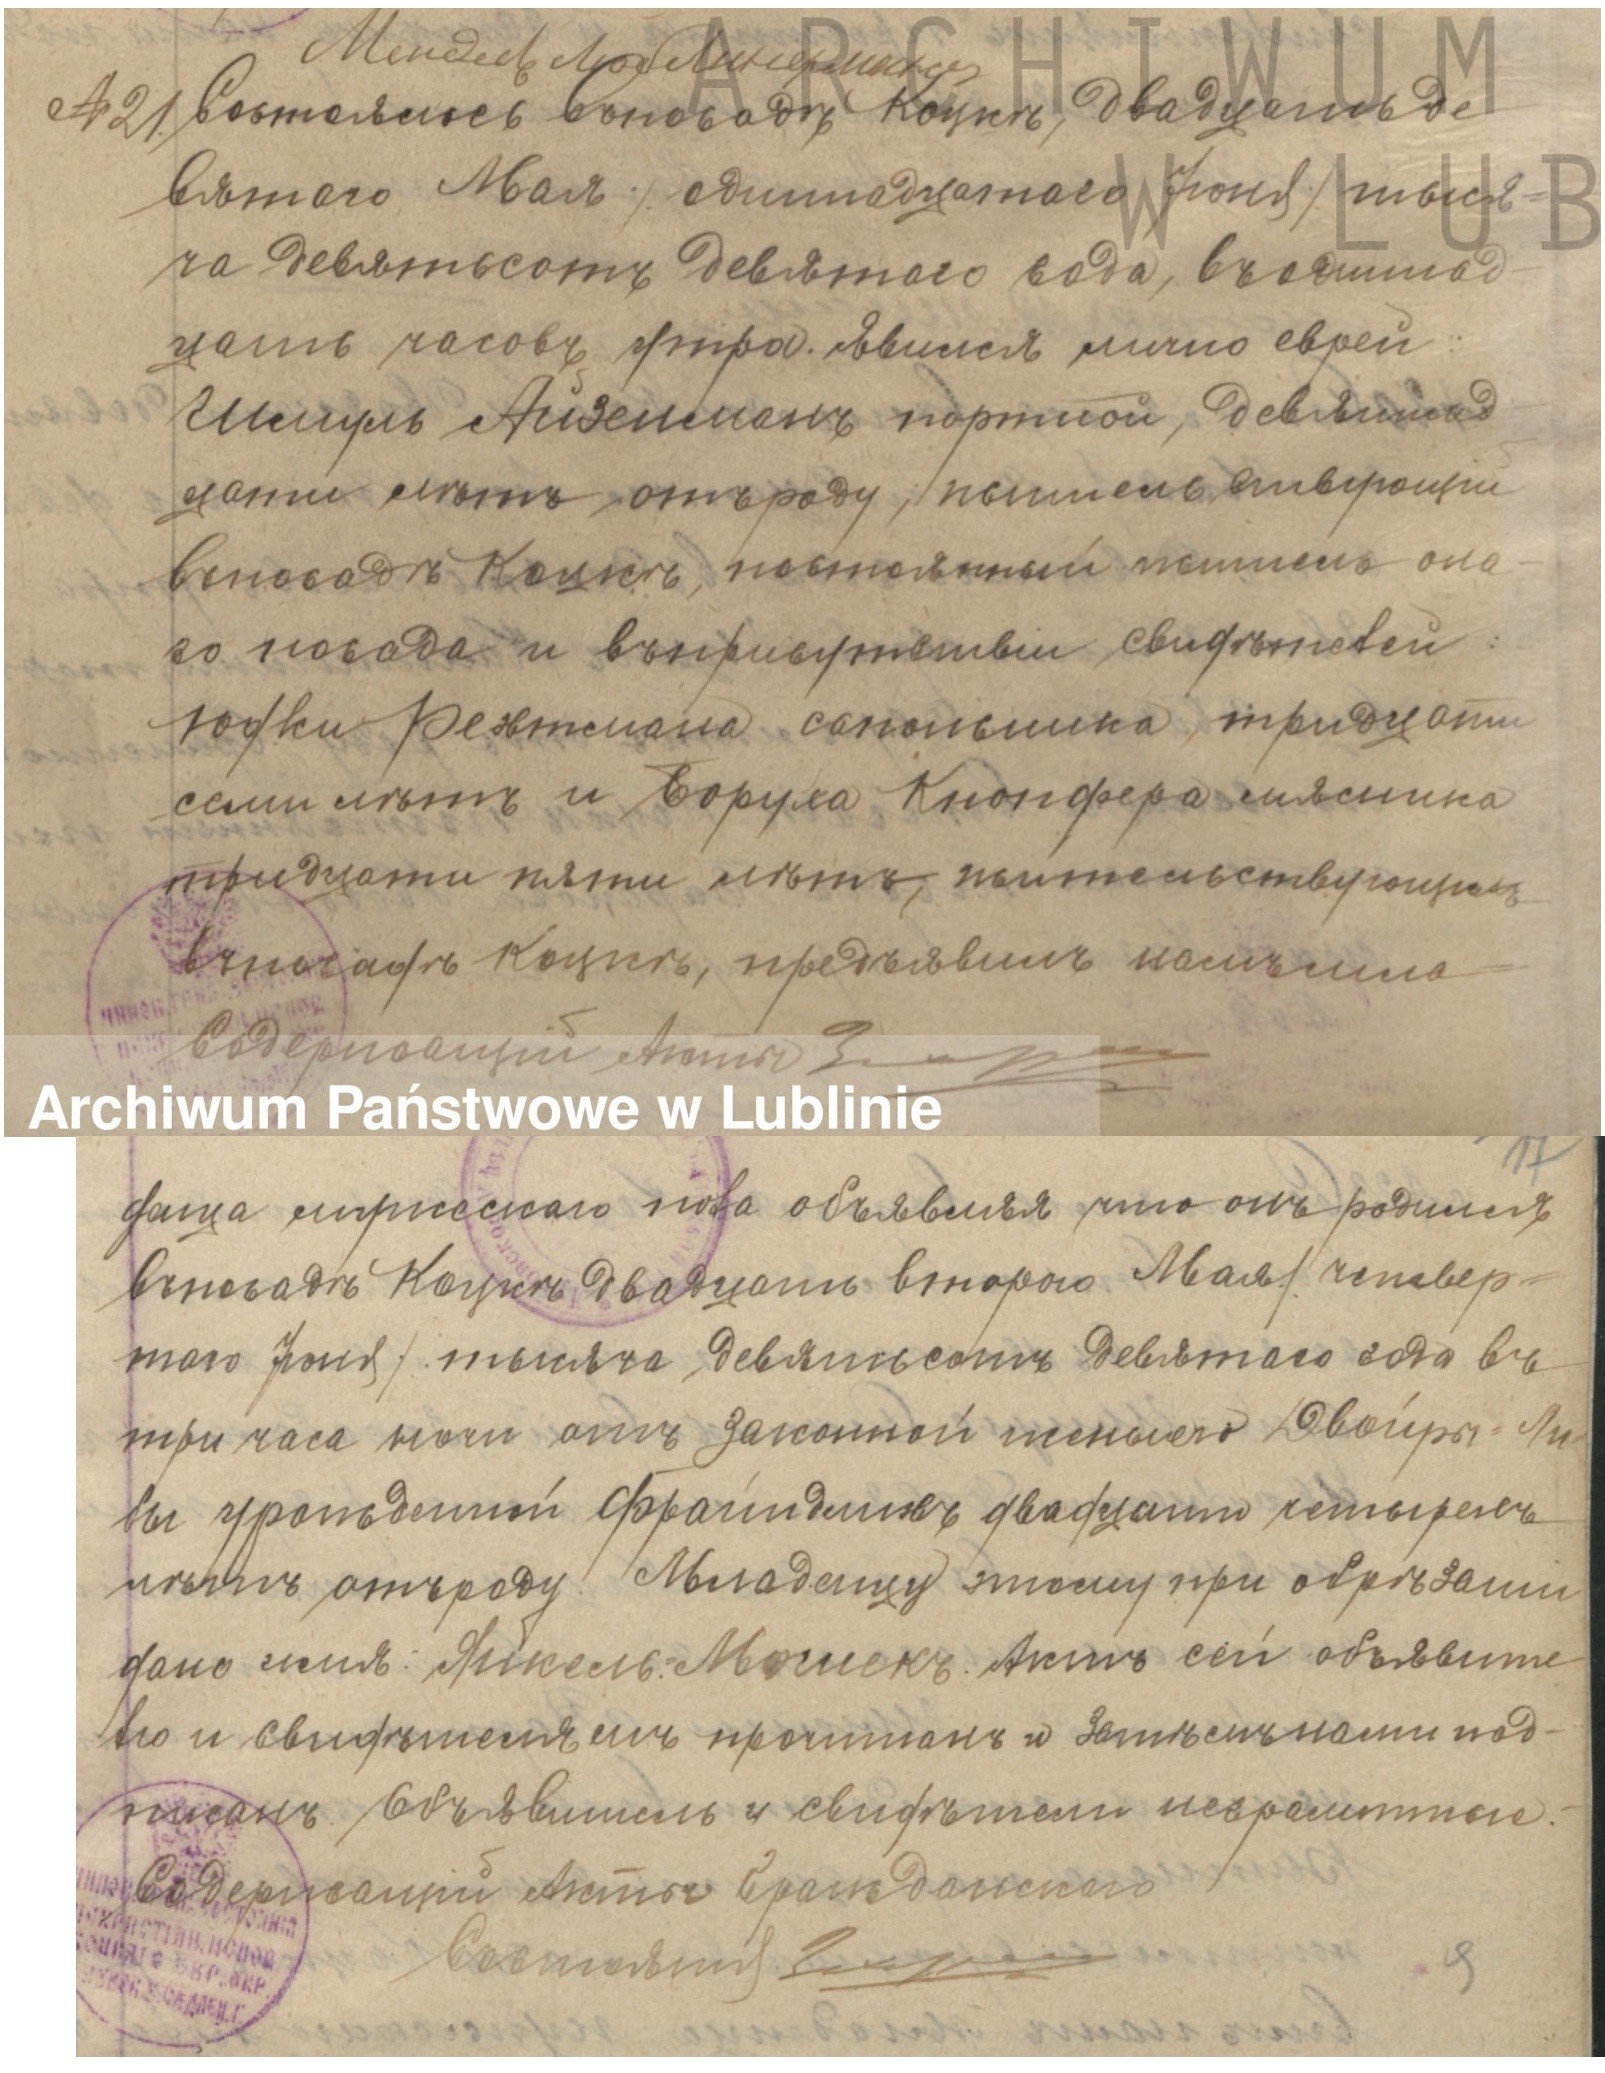 ARCHIWUM
W LUB
№ 21. Состоялось въ посадѣ Коцкѣ, двадцать де
вятаго Мая /: одинадцатаго Іюня :/ тыся-
ча девятьсотъ девятаго года, въ одинад
цать часовъ утра. Явился лично еврей:
Шмуль Айзенманъ портной, девятнад
цати лѣтъ отъ роду, жительствующій
въ посадѣ Коцкѣ, постоянный житель она-
го посада и въ присутствіи свидѣтелей:
сапожника, тридцати
семи лѣтъ и Боруха Кнопфера мясника
тридцати пяти лѣтъ, жительствующихъ
въ посадѣ Коцкѣ, предъявилъ намъ мла-
Содержащій Акты
Archiwum Państwowe w Lublinie
17
денца мужескаго пола объявляя что онъ родился
въ посадѣ Коцкѣ двадцать втораго Мая /: четвер-
таго Іюня :/ тысяча девятьсотъ девятаго года въ
три часа ночи отъ законной жены его Двойры-Ли
бы урожденной двадцати четырехъ
лѣтъ отъ роду. Младенцу этому при обрѣзаніи
дано имя: Янкель-Мошекъ. Актъ сей объявите
лю и свидѣтелямъ прочитанъ и затѣмъ нами под-
писанъ. Объявитель и свидѣтели неграмотные.
Содержащій Акты Гражданскаго
Состоянія